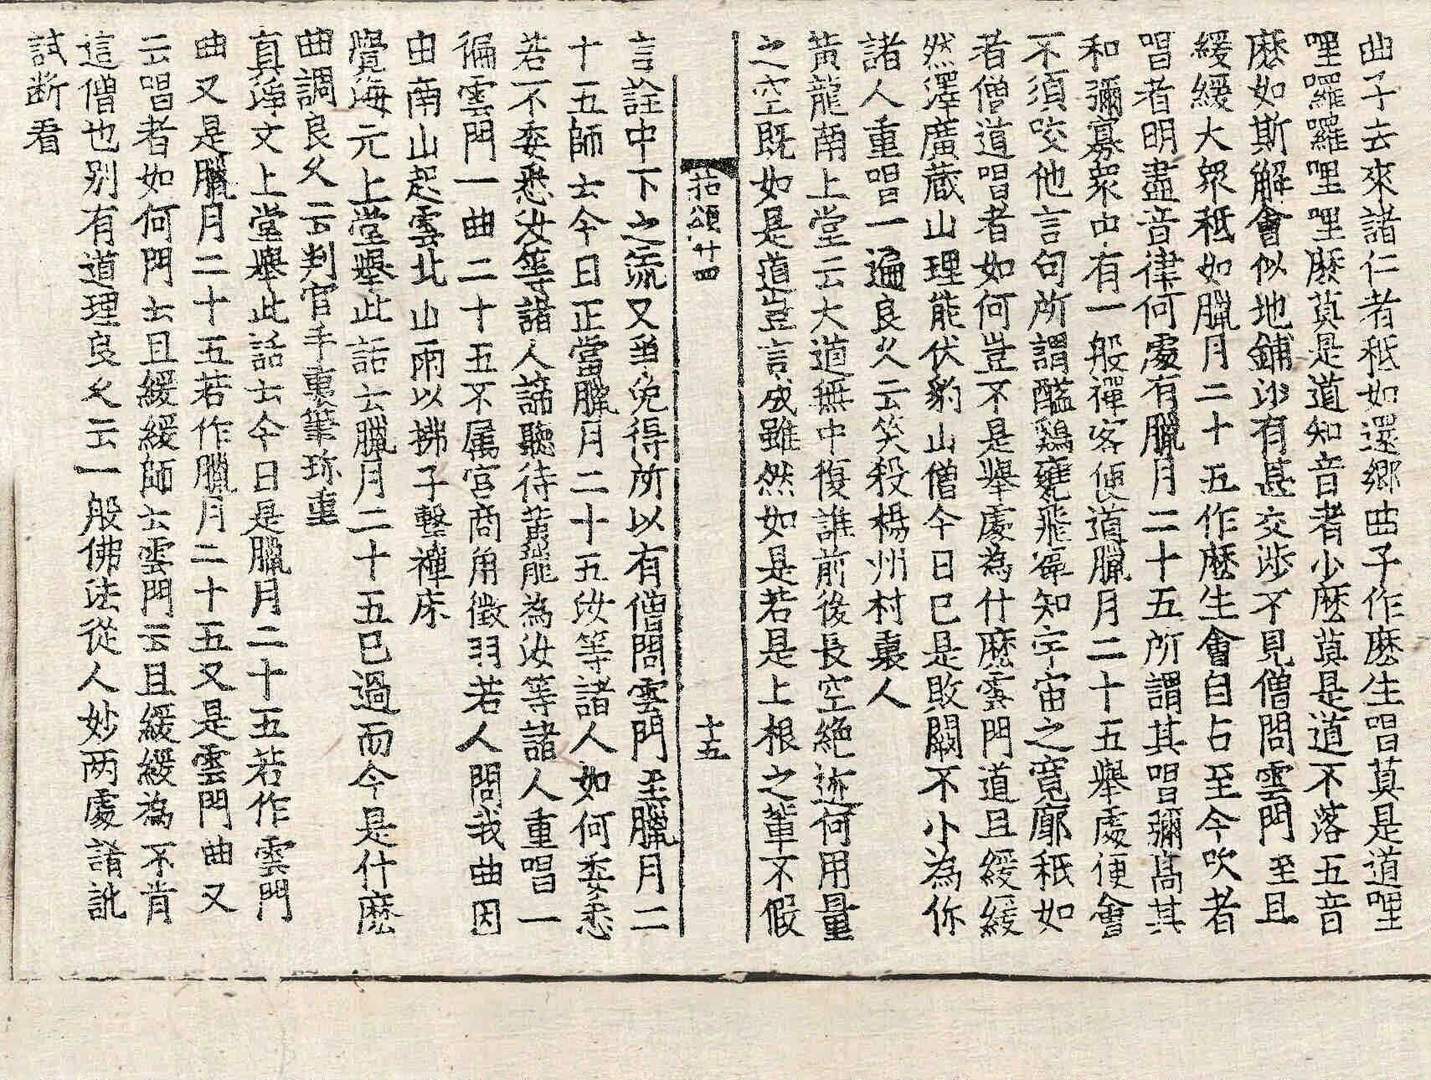 曲子去來諸仁者秖如還鄉曲子作麽生唱莫是道哩
哩囉囉哩哩麽莫是道知音者少麽莫是道不落五音
麽如斯解會似地鋪沙有甚交涉不見僧問雲門至且
緩緩大衆秖如臘月二十五作麽生會自占至今吹者
唱者明盡音律何處有臘月二十五所謂其唱彌高其
和彌寡衆中有一般禪客便道臘月二十五舉處便會
不須咬他言句所謂醯鷄甕飛寧知宇宙之寬廓秖如
者僧道唱者如何豈不是舉處為什麽雲門道且緩緩
然澤廣藏山理能伏豹山僧今日已是敗闕不小為你
諸人重唱一遍良久云笑殺楊州村裏人
黃龍南上堂云大道無中復誰前後長空絶迹何用量
之空既如是道豈言成雖然如是若是上根之輩不假
拈頌廿四
十五
言詮中下之流又爭免得所以有僧問雲門至臘月二
十五師云今日正當臘月二十五汝等諸人如何委悉
若不委悉汝等諸人諦聽待黃龍為汝等諸人重唱一
徧雲門一曲二十五不属宮商角徵羽若人問我曲因
由南山起雲北山雨以拂子擊禪床
覺海元上堂舉此話云臘月二十五已過而今是什麽
曲調良久云判官手裏筆珎重
真淨文上堂舉此話云今日是臘月二十五若作雲門
曲又是臘月二十五若作臘月二十五又是雲門曲又
云唱者如何門云且緩緩師云雲門云且緩緩為不肯
這僧也別有道理良久云一般佛法從人妙两處誵訛
試断看